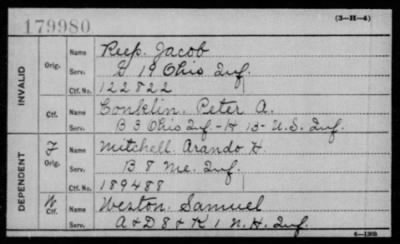 179980
(3-H-4)
INVALID
Orig.
Name Reep. Jacob
Serv. G 19 Ohio Inf.
Ctf. No. 122822
Ctf.
Name Conklin. Peter A.
Serv. B 3 Ohio Inf - H 13 - U.S. Inf.
DEPENDENT
F
Orig.
Name Mitchell. Arando H.
Serv. B 8 Me. Inf.
Ctf. No. 189488
W
Ctf.
Name Weston. Samuel
Serv. A & D 8 & K 1 N.H. Inf.